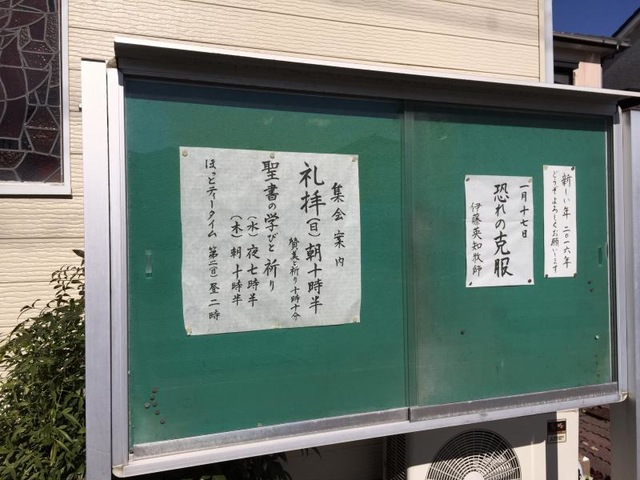 新しい年 二〇一六年
どうぞよろしくお願いします
一月十七日
恐れの克服
伊藤英知牧師
集会案内
礼拝(日)朝十時半
賛美と祈り十時十分
聖書の学びと祈り
(水)夜七時半
(木)朝十時半
ほっとティータイム 第二(日)昼二時